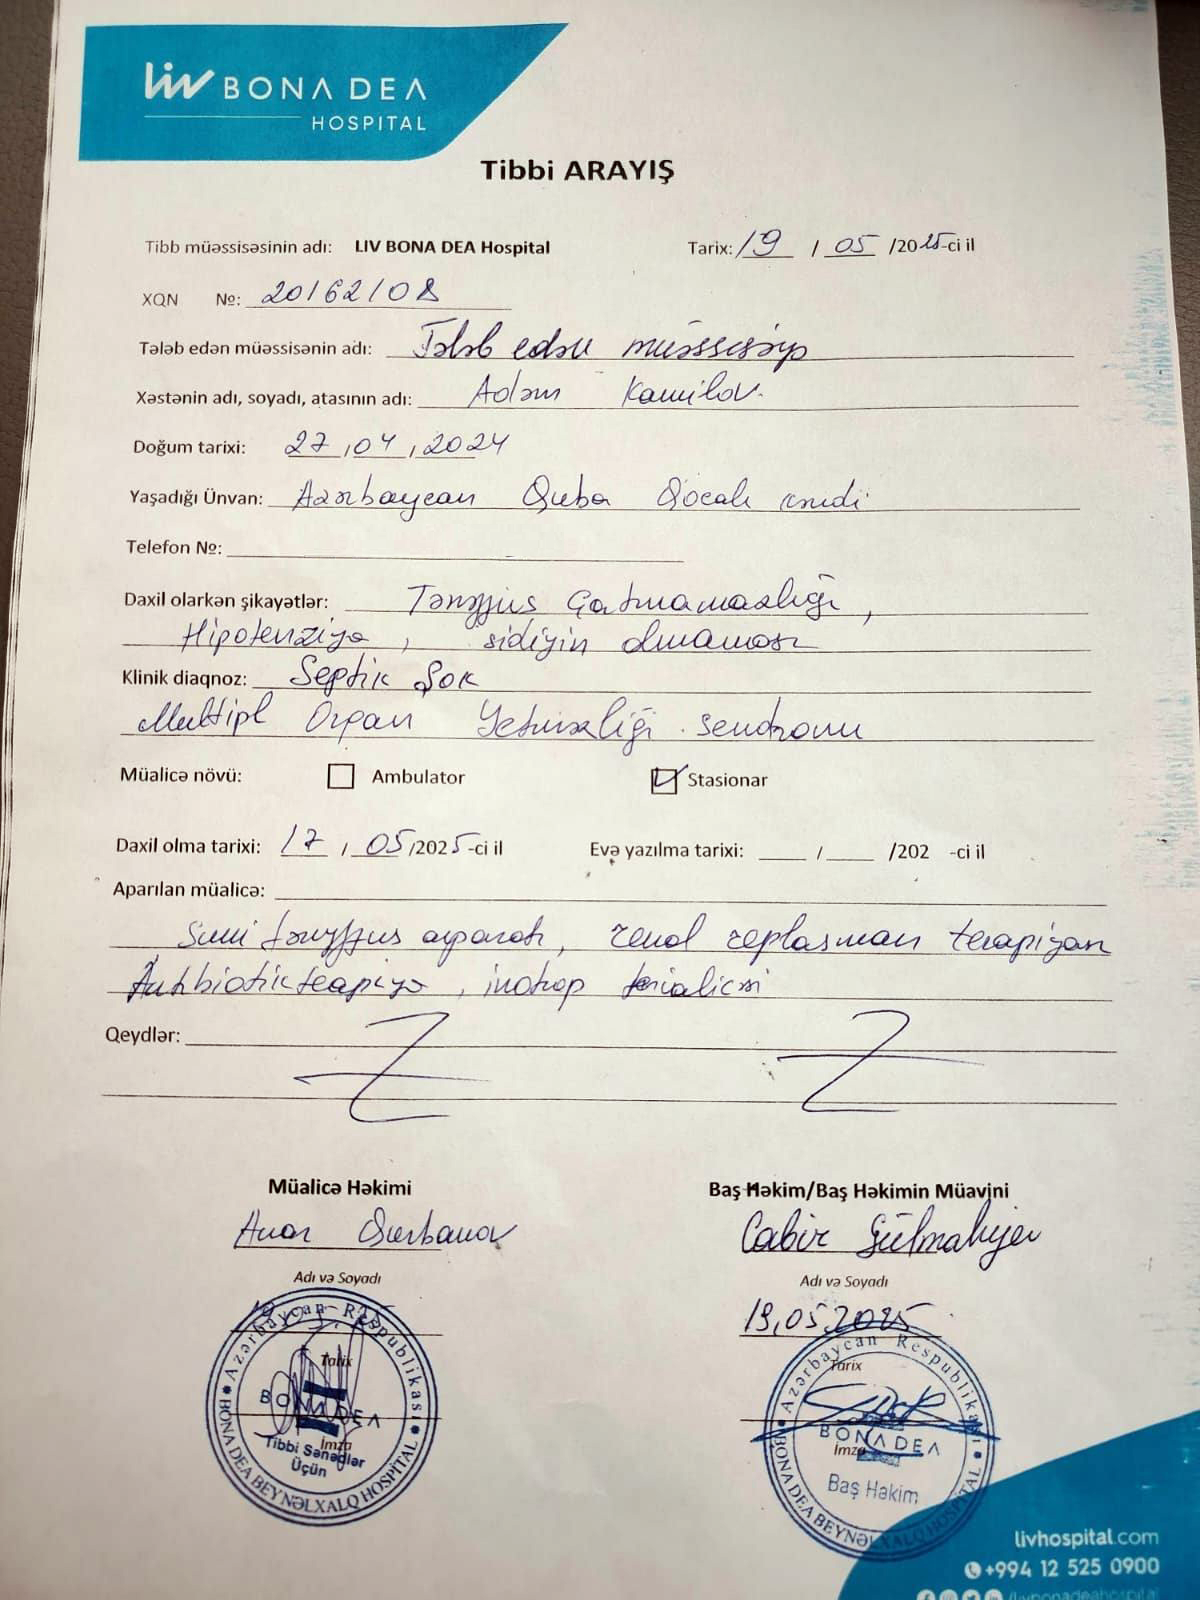 liv BONA DEA
HOSPITAL
Tibbi ARAYIŞ
Tibb müəssisəsinin adı: LIV BONA DEA Hospital Tarix: 19 / 05 /2025-ci il
XQN №: 20162108
Tələb edən müəssisənin adı: Tələb edən müəssisəyə
Xəstənin adı, soyadı, atasının adı: Adəm Kamilov
Doğum tarixi: 27, 04, 2024
Yaşadığı Ünvan: Azərbaycan Quba Qocalı kəndi
Telefon №:
Daxil olarkən şikayətlər: Tənəffüs Çatmamazlığı,
Hipotenziya, sidiyin olmaması
Klinik diaqnoz: Septik Şok
Multipl Orqan Yetməzliği sendromu
Müalicə növü: Ambulator Stasionar
Daxil olma tarixi: 17 / 05 /2025-ci il Evə yazılma tarixi: / /202 -ci il
Aparılan müalicə:
Süni tənəffüs aparatı, renal replasman terapiyası
Antibiotikterapiya, inotrop
Qeydlər:
Müalicə Həkimi Baş Həkim/Baş Həkimin Müavini
Anar Qurbanov Cabir Gülmalıyev
Adı və Soyadı Adı və Soyadı
19.05.2025
Tarix Tarix
İmza İmza
Azərbaycan Respublikası
BONA DEA
Tibbi Sənədlər
Üçün
BONA DEA BEYNƏLXALQ HOSPİTAL
Azərbaycan Respublikası
BONA DEA
Baş Həkim
BONA DEA BEYNƏLXALQ HOSPİTAL
livhospital.com
+994 12 525 0900
/livbonadeahospital